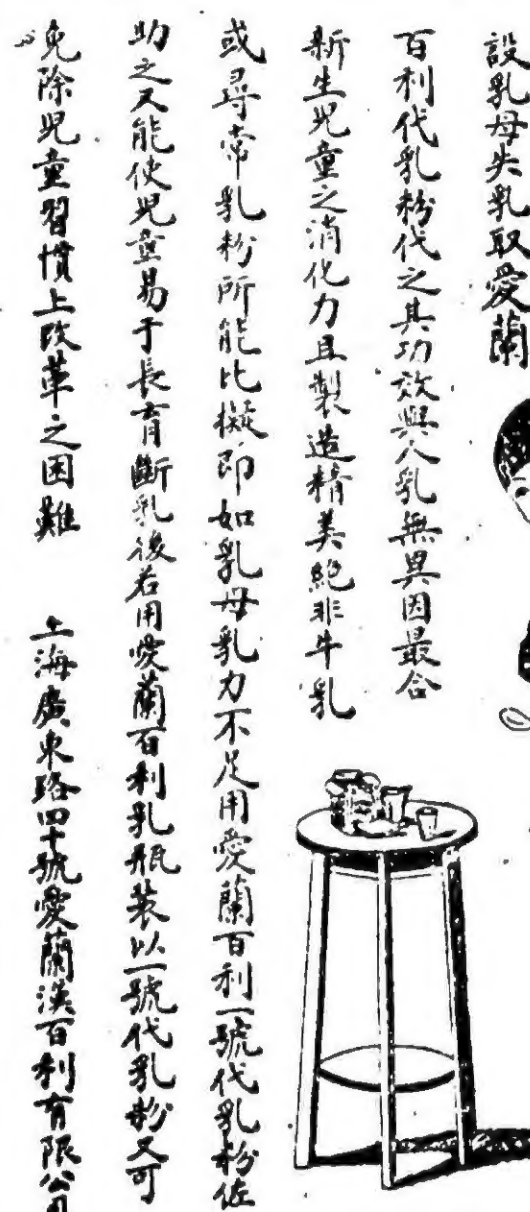 設乳母失乳取愛蘭
百利代乳粉代之其功效與人乳無異因最合
新生兒童之消化力且製造精美絕非牛乳
或尋常乳粉所能比擬即如乳母乳力不足用愛蘭百利一號代乳粉佐
助之又能使兒童易于長育斷乳後若用愛蘭百利乳瓶裝以一號代乳粉又可
免除兒童習慣上改革之困難 上海廣東路四十號愛蘭漢百利有限公司